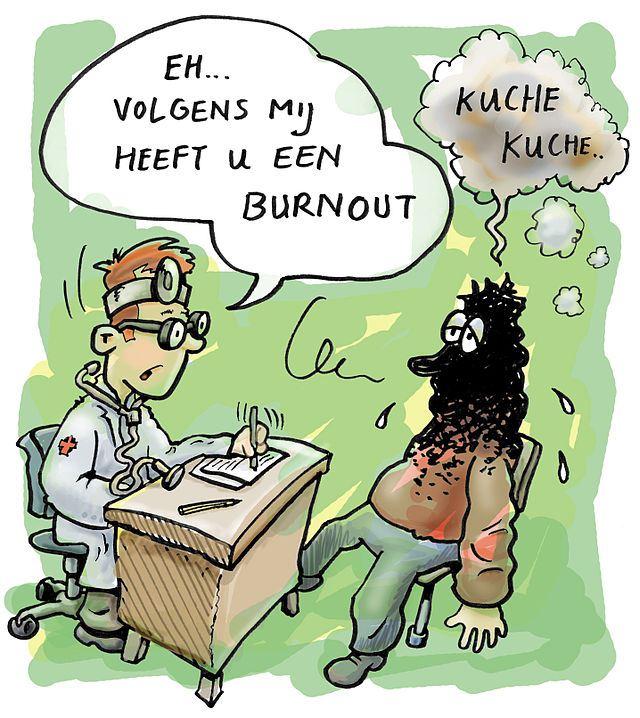 EH...
VOLGENS MIJ
HEEFT U EEN
BURNOUT
KUCHE
KUCHE..